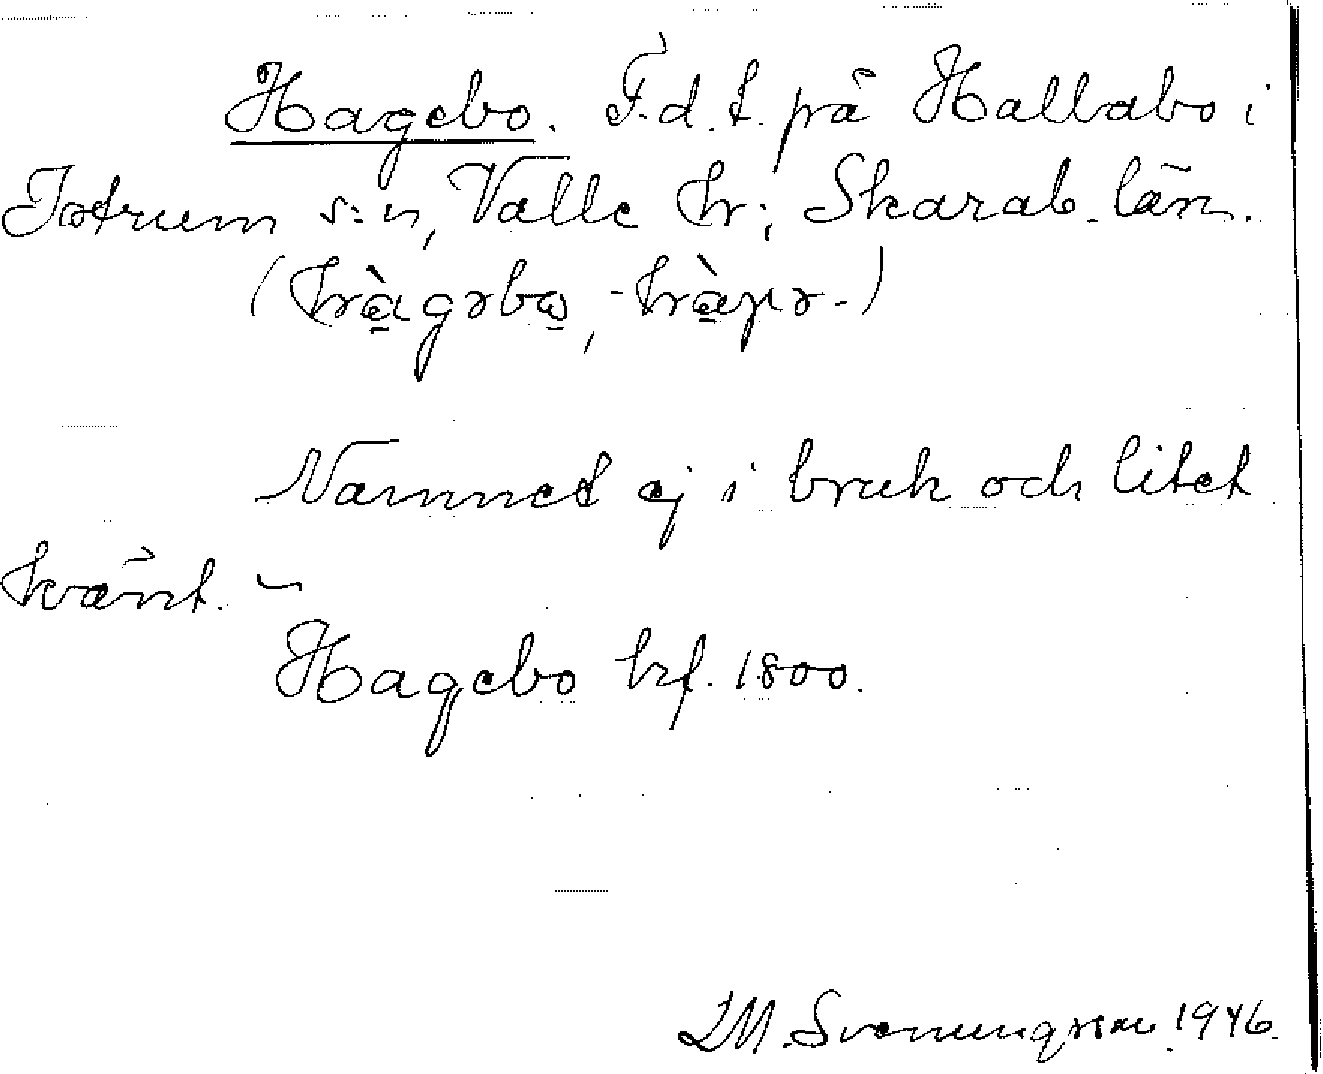 Hagebo. F.d.t. på Hallabo i
Istrum s:n, Valle hr; Skarab. län.
(hàgəbo,
Namnet ej i bruk och litet
känt. –
Hagebo hfl. 1800.
Svenungsson 1946.